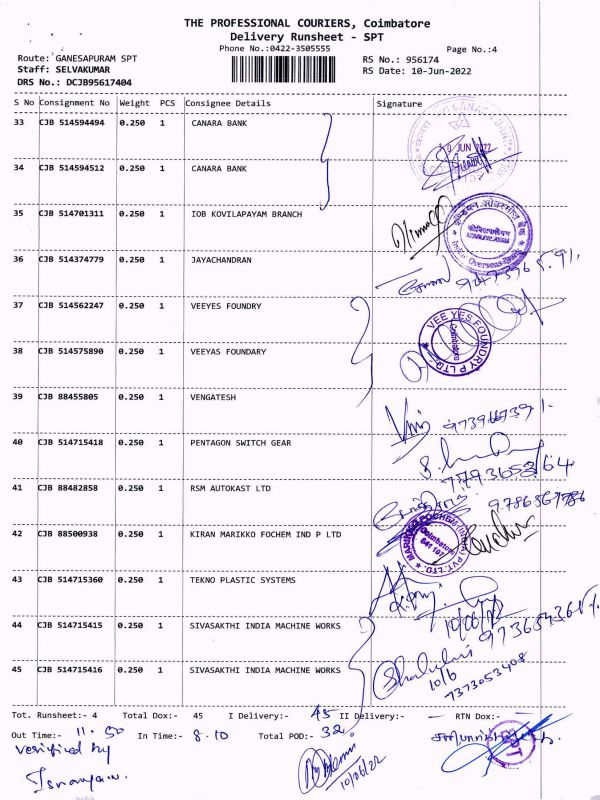 THE PROFESSIONAL COURIERS, Coimbatore
Delivery Runsheet - SPT
Phone No.:0422-3505555
Page No.:4
Route: GANESAPURAM SPT
RS No.: 956174
Staff: SELVAKUMAR
RS Date: 10-Jun-2022
DRS No.: DCJB95617404
S No Consignment No Weight PCS Consignee Details Signature
33 CJB 514594494 0.250 1 CANARA BANK
34 CJB 514594512 0.250 1 CANARA BANK
JUN 2022
35 CJB 514701311 0.250 1 IOB KOVILAPAYAM BRANCH
Indian Overseas Bank
36 CJB 514374779 0.250 1 JAYACHANDRAN
37 CJB 514562247 0.250 1 VEEYES FOUNDRY
VEE YES FOUNDRY P LTD.
Coimbatore
38 CJB 514575890 0.250 1 VEEYAS FOUNDARY
39 CJB 88455805 0.250 1 VENGATESH
40 CJB 514715418 0.250 1 PENTAGON SWITCH GEAR
41 CJB 88482858 0.250 1 RSM AUTOKAST LTD
42 CJB 88500938 0.250 1 KIRAN MARIKKO FOCHEM IND P LTD
Coimbatore
641 107
43 CJB 514715360 0.250 1 TEKNO PLASTIC SYSTEMS
10/06/22
44 CJB 514715415 0.250 1 SIVASAKTHI INDIA MACHINE WORKS
45 CJB 514715416 0.250 1 SIVASAKTHI INDIA MACHINE WORKS
10/6
7373053408
Tot. Runsheet:- 4 Total Dox:- 45 I Delivery:- 45 II Delivery:- — RTN Dox:- —
Out Time:- 11.50 In Time:- 8.10 Total POD:- 32
verified by
10/06/22